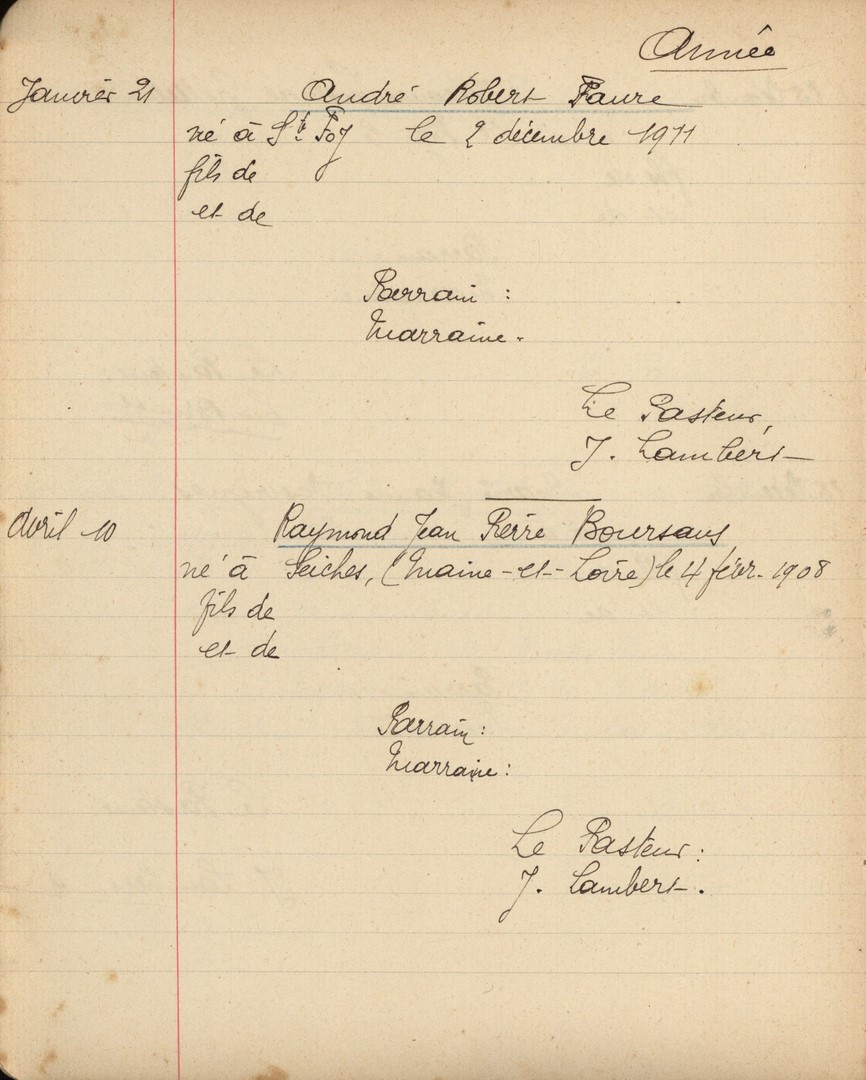 Année
Janvier 21 André Robert Faure
né à Ste Foy le 2 décembre 1911
fils de
et de
Parrain :
Marraine.
Le Pasteur,
J. Lambert
Avril 10 Raymond Jean Pierre Boursaus
né à Seiches, (Maine-et-Loire) le 4 févr. 1908
fils de
et de
Parrain :
Marraine :
Le Pasteur :
J. Lambert.